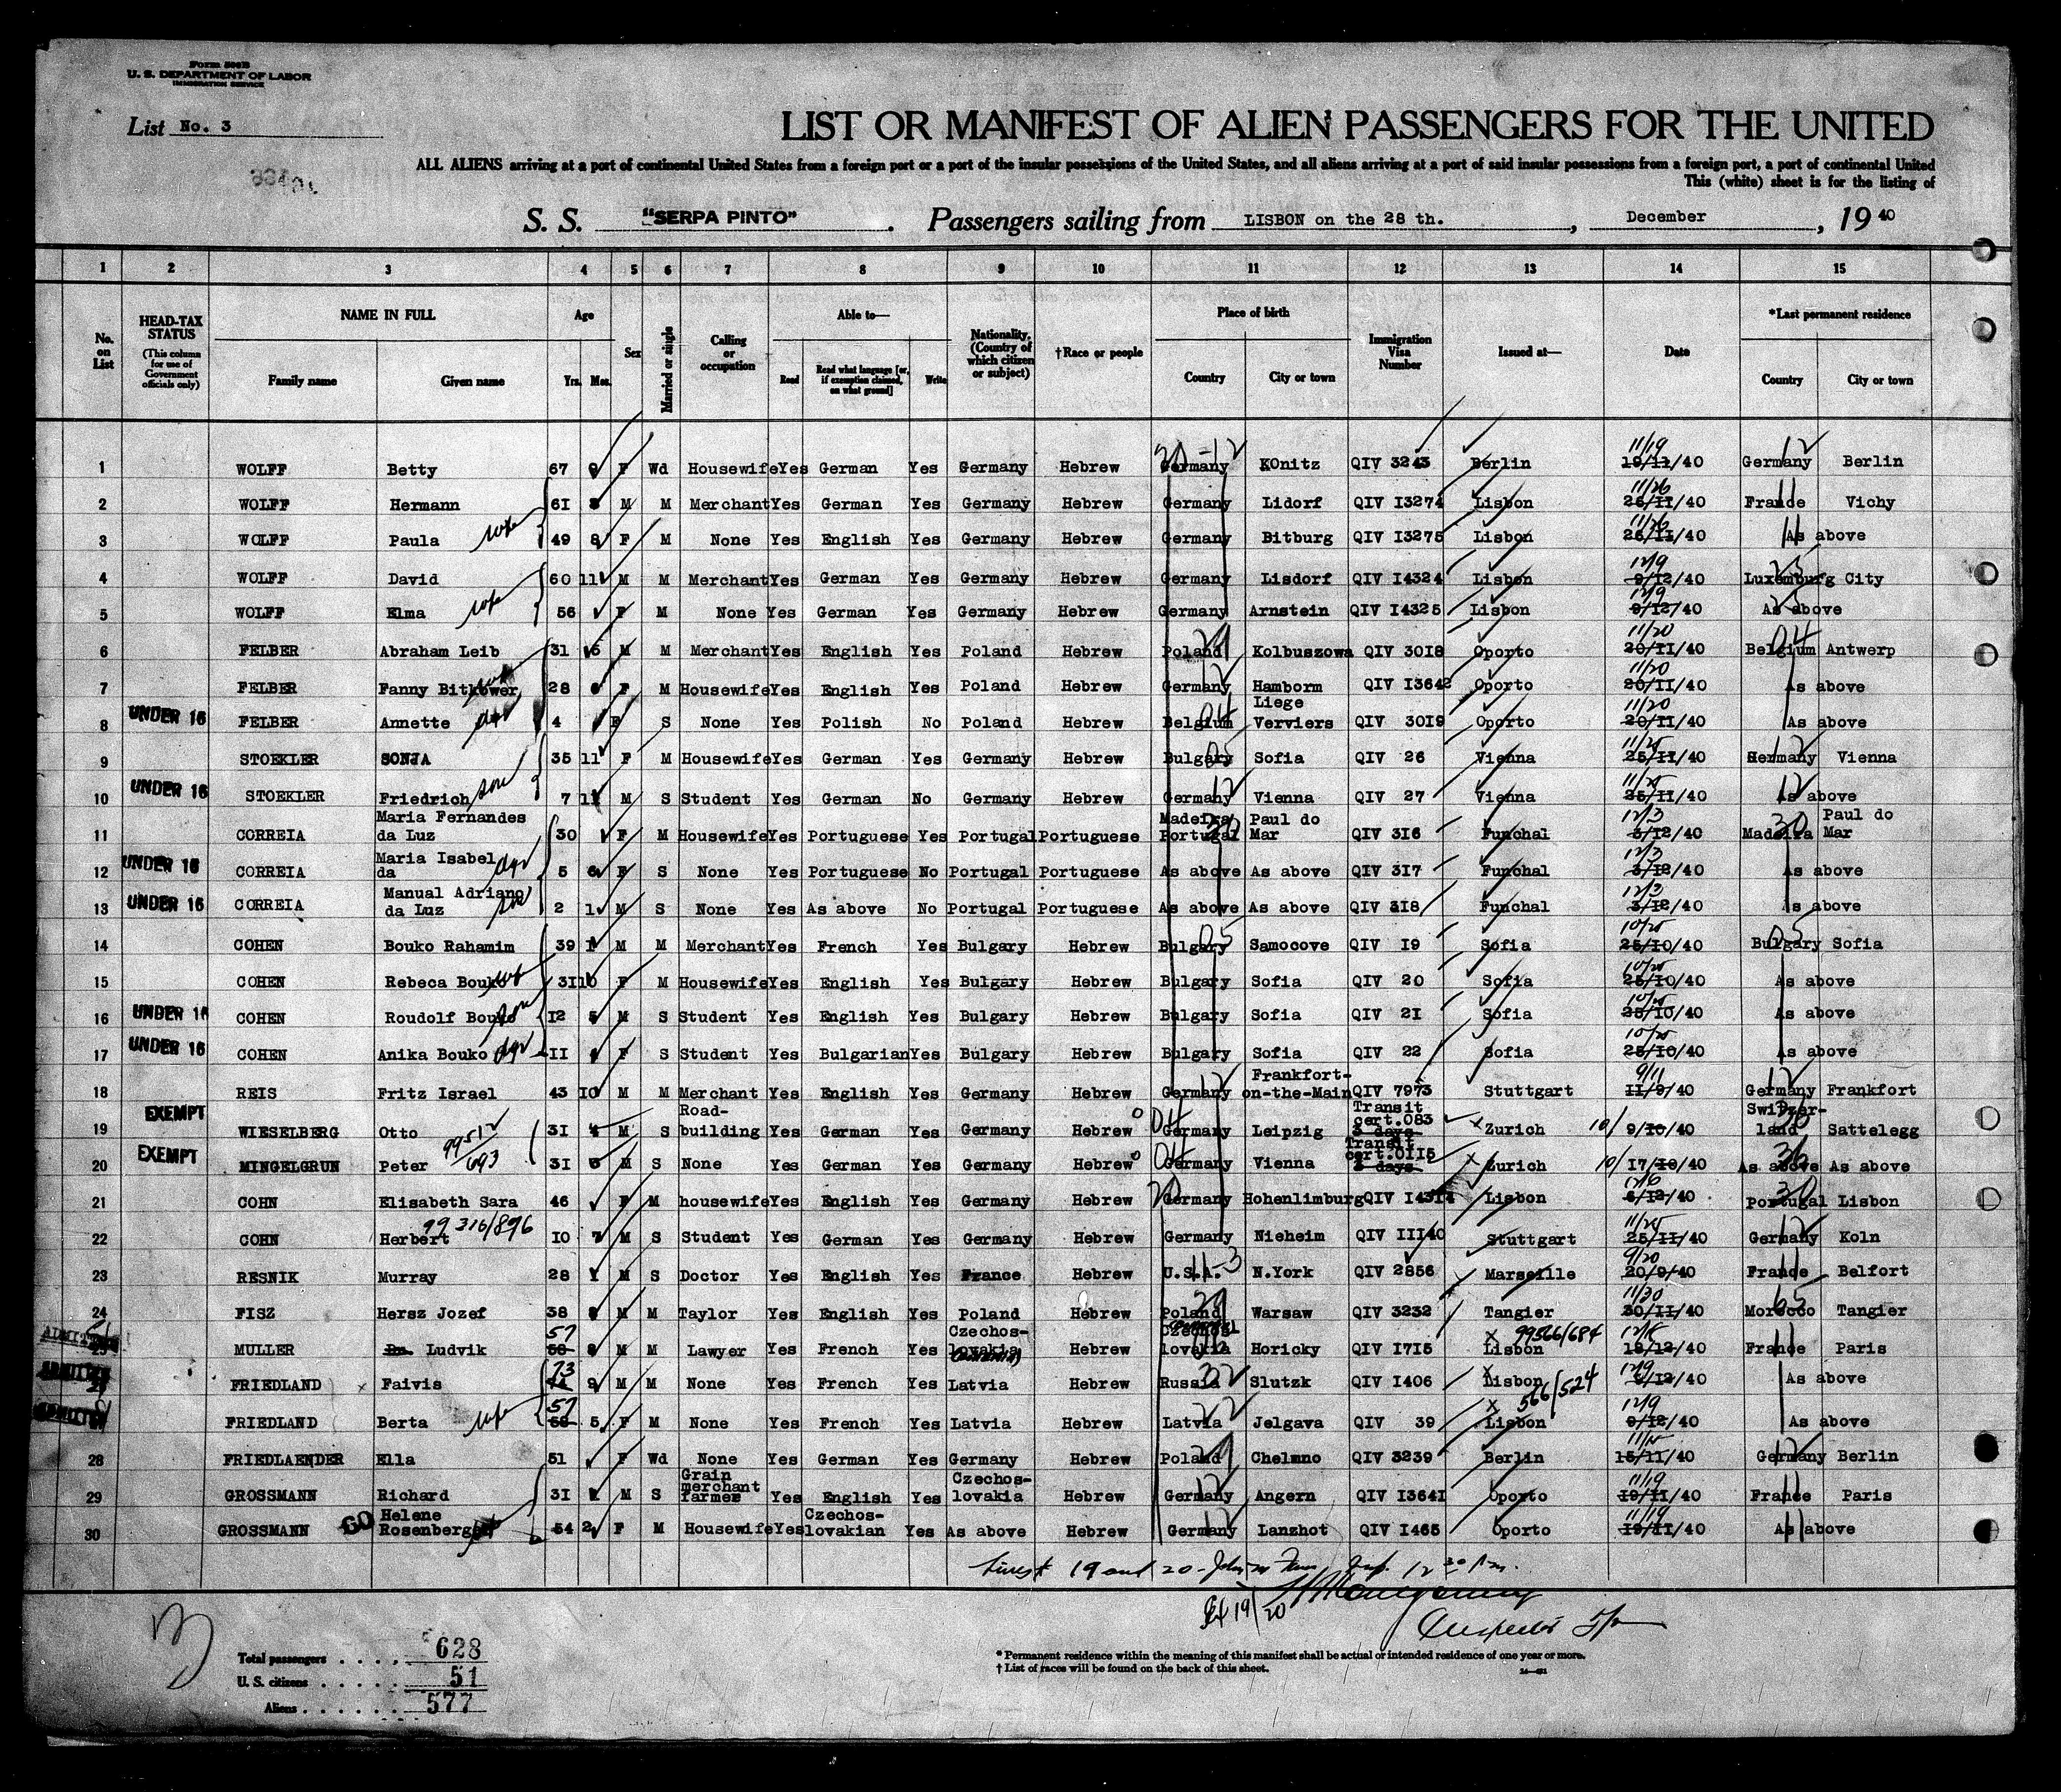 Form 500B
U. S. DEPARTMENT OF LABOR
IMMIGRATION SERVICE
List No. 3
LIST OR MANIFEST OF ALIEN PASSENGERS FOR THE UNITED
ALL ALIENS arriving at a port of continental United States from a foreign port or a port of the insular possessions of the United States, and all aliens arriving at a port of said insular possessions from a foreign port, a port of continental United
This (white) sheet is for the listing of
S. S. "SERPA PINTO". Passengers sailing from LISBON on the 28 th., December, 19 40
1 2 3 4 5 6 7 8 9 10 11 12 13 14 15
No. on List
HEAD-TAX STATUS (This column for use of Government officials only)
NAME IN FULL Family name Given name
Age Yrs. Mos.
Sex
Married or single
Calling or occupation
Able to— Read Read what language [or, if exemption claimed, on what ground] Write
Nationality. (Country of which citizen or subject)
†Race or people
Place of birth Country City or town
Immigration Visa Number
Issued at—
Date
*Last permanent residence Country City or town
1 WOLFF Betty 67 F Wd Housewife Yes German Yes Germany Hebrew Germany KOnitz QIV 3243 Berlin 11/19 19/11/40 Germany Berlin
2 WOLFF Hermann 6I M M Merchant Yes German Yes Germany Hebrew Germany Lidorf QIV I3274 Lisbon 11/26 26/II/40 France Vichy
3 WOLFF Paula wife 49 8 F M None Yes English Yes Germany Hebrew Germany Bitburg QIV I3275 Lisbon 11/26 26/II/40 As above
4 WOLFF David 60 11 M M Merchant Yes German Yes Germany Hebrew Germany Lisdorf QIV I4324 Lisbon 12/9 9/12/40 Luxemburg City
5 WOLFF Elma wife 56 F M None Yes German Yes Germany Hebrew Germany Arnstein QIV I4325 Lisbon 12/9 9/12/40 As above
6 FELBER Abraham Leib 31 M M Merchant Yes English Yes Poland Hebrew Poland Kolbuszowa QIV 30I8 Oporto 11/20 20/II/40 Belgium Antwerp
7 FELBER Fanny Bitkower wife 28 F M Housewife Yes English Yes Poland Hebrew Germany Hamborn QIV I3642 Oporto 11/20 20/II/40 As above
8 UNDER 16 FELBER Annette dgr 4 F S None Yes Polish No Poland Hebrew Belgium Liege Verviers QIV 30I9 Oporto 11/20 20/II/40 As above
9 STOEKLER SONJA 35 11 F M Housewife Yes German Yes Germany Hebrew Bulgary Sofia QIV 26 Vienna 11/25 25/II/40 Hermany Vienna
10 UNDER 16 STOEKLER Friedrich son 7 M S Student Yes German No Germany Hebrew Germany Vienna QIV 27 Vienna 11/25 25/II/40 As above
11 CORREIA Maria Fernandes da Luz 30 F M Housewife Yes Portuguese Yes Portugal Portuguese Madeira Portugal Paul do Mar QIV 3I6 Funchal 12/3 3/12/40 Madeira Paul do Mar
12 UNDER 16 CORREIA Maria Isabel da dgr 5 F S None Yes Portuguese No Portugal Portuguese As above As above QIV 3I7 Funchal 12/3 3/12/40 As above
13 UNDER 16 CORREIA Manual Adriano da Luz son 2 M S None Yes As above No Portugal Portuguese As above As above QIV 3I8 Funchal 12/3 3/12/40 As above
14 COHEN Bouko Rahamim 39 M M Merchant Yes French Yes Bulgary Hebrew Bulgary Samocove QIV I9 Sofia 10/25 25/I0/40 Bulgary Sofia
15 COHEN Rebeca Bouko wife 3I 10 F M Housewife Yes English Yes Bulgary Hebrew Bulgary Sofia QIV 20 Sofia 10/25 25/I0/40 As above
16 UNDER 16 COHEN Roudolf Bouko son I2 M S Student Yes English Yes Bulgary Hebrew Bulgary Sofia QIV 2I Sofia 10/25 25/I0/40 As above
17 UNDER 16 COHEN Anika Bouko dgr II F S Student Yes Bulgarian Yes Bulgary Hebrew Bulgary Sofia QIV 22 Sofia 10/25 25/I0/40 As above
18 REIS Fritz Israel 43 I0 M M Merchant Yes English Yes Germany Hebrew Germany Frankfort-on-the-Main QIV 7973 Stuttgart 9/11 II/9/40 Germany Frankfort
19 EXEMPT WIESELBERG Otto 3I M S Road-building Yes German Yes Germany Hebrew Germany Leipzig Transit cert.083 Zurich 10/ 9/I0/40 Switzer-land Sattelegg
20 EXEMPT MINGELGRUN Peter 3I M S None Yes German Yes Germany Hebrew Germany Vienna Transit cert.0II5 2 days Zurich 10/ I7/I0/40 As above As above
21 COHN Elisabeth Sara 46 F M housewife Yes English Yes Germany Hebrew Germany Hohenlimburg QIV I43I4 Lisbon 12/6 6/12/40 Portugal Lisbon
22 COHN Herbert 99316/896 I0 7 M S Student Yes German Yes Germany Hebrew Germany Nieheim QIV III40 Stuttgart 11/25 25/II/40 Germany Koln
23 RESNIK Murray 28 M S Doctor Yes English Yes France Hebrew U.S.A. N.York QIV 2856 Marseille 9/20 20/9/40 France Belfort
24 FISZ Hersz Jozef 38 M M Taylor Yes English Yes Poland Hebrew Poland Warsaw QIV 3232 Tangier 11/30 30/II/40 Morocco Tangier
MULLER Dr. Ludvik 57 58 M M Lawyer Yes French Yes Czechos-lovakia Hebrew Czechos-lovakia Horicky QIV I7I5 99566/684 Lisbon 12/18 18/12/40 France Paris
FRIEDLAND Faivis 73 9 M M None Yes French Yes Latvia Hebrew Russia Slutzk QIV I406 Lisbon 12/9 9/12/40 As above
FRIEDLAND Berta wife 57 58 5 F M None Yes French Yes Latvia Hebrew Latvia Jelgava QIV 39 566/524 Lisbon 12/9 9/12/40 As above
28 FRIEDLAENDER Ella 51 F Wd None Yes German Yes Germany Hebrew Poland Chelmno QIV 3239 Berlin 11/15 15/II/40 Germany Berlin
29 GROSSMANN Richard 3I M S Grain merchant farmer Yes English Yes Czechos-lovakia Hebrew Germany Angern QIV I364I Oporto 11/19 19/II/40 France Paris
30 GROSSMANN Helene Rosenberg 54 2 F M Housewife Yes Czechos-lovakian Yes As above Hebrew Germany Lanzhot QIV I465 Oporto 11/19 I9/II/40 As above
19 and 20
Total passengers . . . . 628
U. S. citizens . . . . . 51
Aliens . . . . . . 577
* Permanent residence within the meaning of this manifest shall be actual or intended residence of one year or more.
† List of races will be found on the back of this sheet.